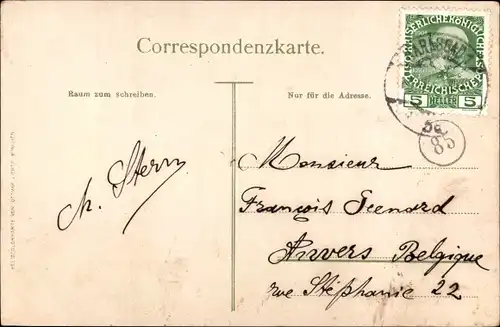 Correspondenzkarte.
Raum zum schreiben.
Nur für die Adresse.
5 HELLER 5
85
M. Stern
Monsieur
François Seenard
Anvers Belgique
rue Stéphanie 22